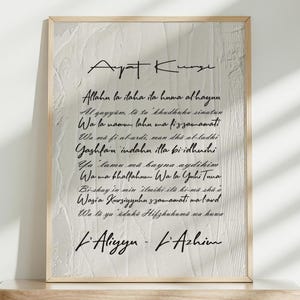 Ayat Kursi
Allahu la ilaha ila huwa al hayun
Al qayyum, la ta'khudhuhu sinatun
Wa la nawum lahu ma fissamawati
Wa ma fi al-ardi, man dha al-ladhi
Yashfa'u indahu illa bi idhnihi
Ya'lamu ma bayna aydihim
Wa ma khalfahum Wa la
Bi-shay'in min 'ilmihi ila bi ma sha'a
Wasia Kursiyyuhu ssamawati wa'l ard
Wa la ya'uduhu Hifzhuhuma wa huwa
L'Aliyyu - L'Azhim